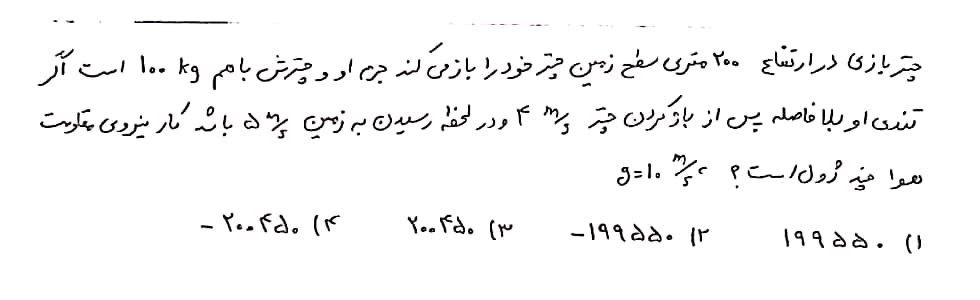 چتر بازی در ارتفاع ۲۰۰ متری سطح زمین چتر خود را باز می کند جرم او و چترش با هم ۱۰۰ kg است اگر
تندی او بلافاصله پس از باز کردن چتر ۴ m/s و در لحظه رسیدن به زمین ۵ m/s باشد کار نیروی مقاومت
هوا چند ژول است؟ g=۱۰ m/s²
۱) ۱۹۹۵۵۰ ۲) -۱۹۹۵۵۰ ۳) ۲۰۰۴۵۰ ۴) -۲۰۰۴۵۰